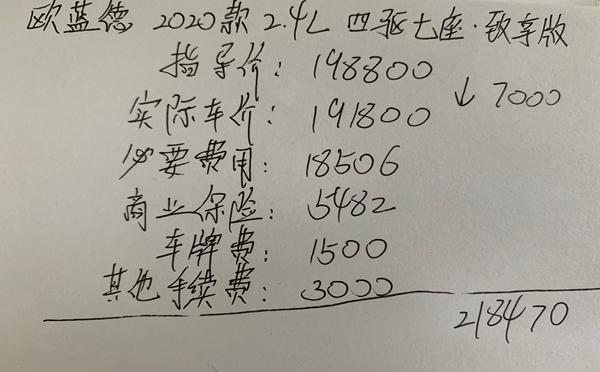 欧蓝德 2020款 2.4L 四驱七座·致享版
指导价: 198800
↓ 7000
实际车价: 191800
必要费用: 18506
商业保险: 5482
车牌费: 1500
其他手续费: 3000
218470